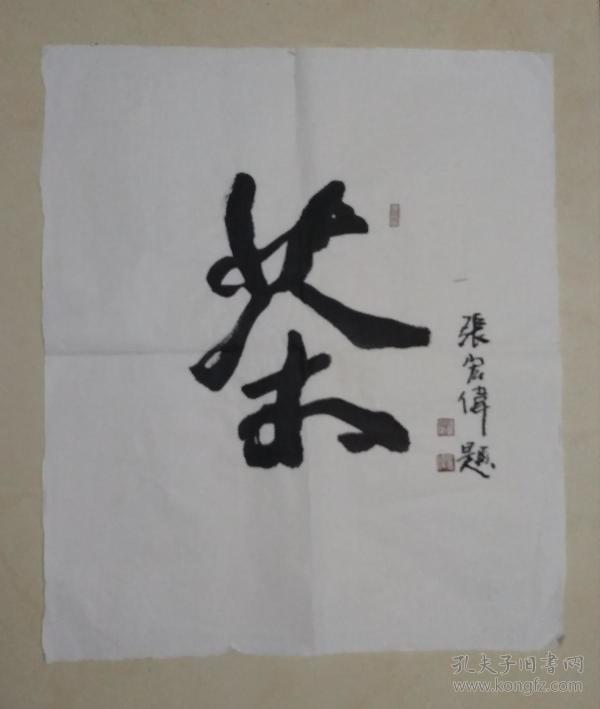 茶
張宏偉題
孔夫子旧书网
www.kongfz.com